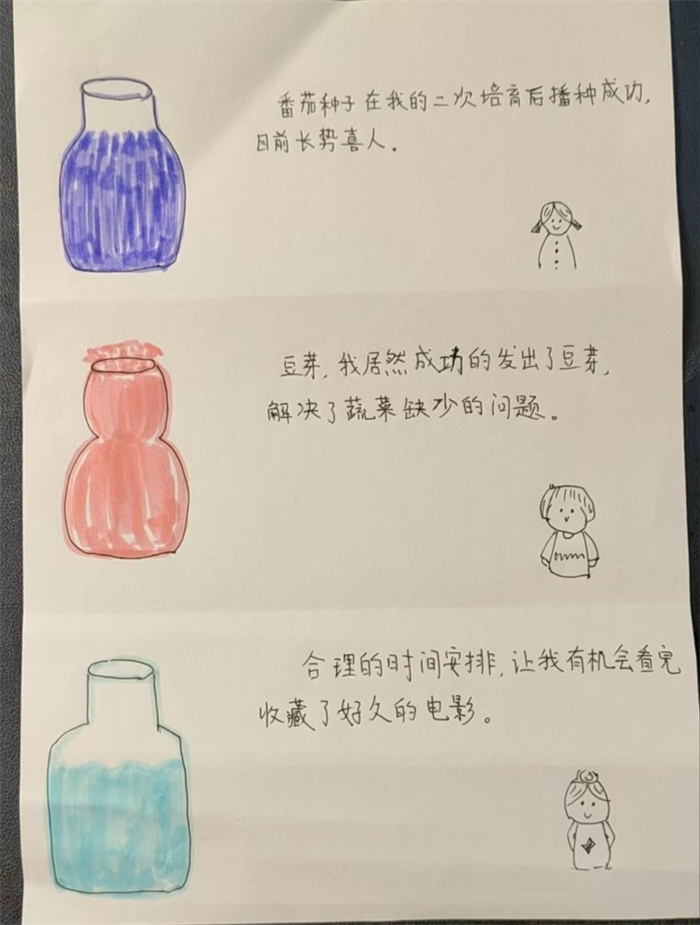 番茄种子在我的二次培育后播种成功,
目前长势喜人。
豆芽,我居然成功的发出了豆芽,
解决了蔬菜缺少的问题。
合理的时间安排,让我有机会看完
收藏了好久的电影。